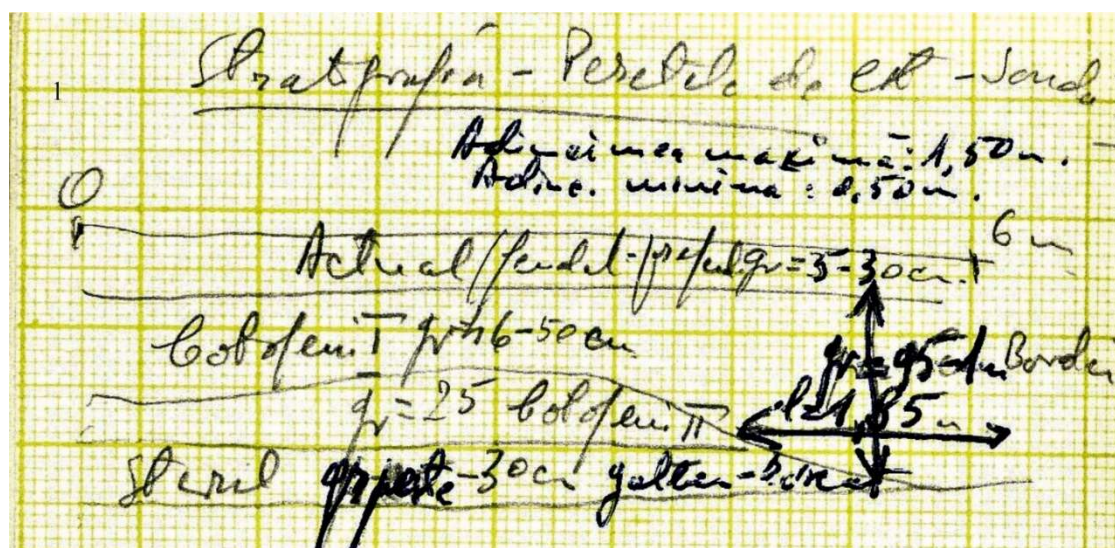 Stratigrafia - Peretele de est - Sonda
1
Adincimea maximă: 1,50 m.
Adinc. minima: 0,50 m.
0
6 m
Actual/feudal- gr=5-30cm.
Coțofeni I gr=16-50cm
gr=95cm Bordei
gr=25 Coțofeni II
l=1,85m
Steril gr peste-30cm galben-